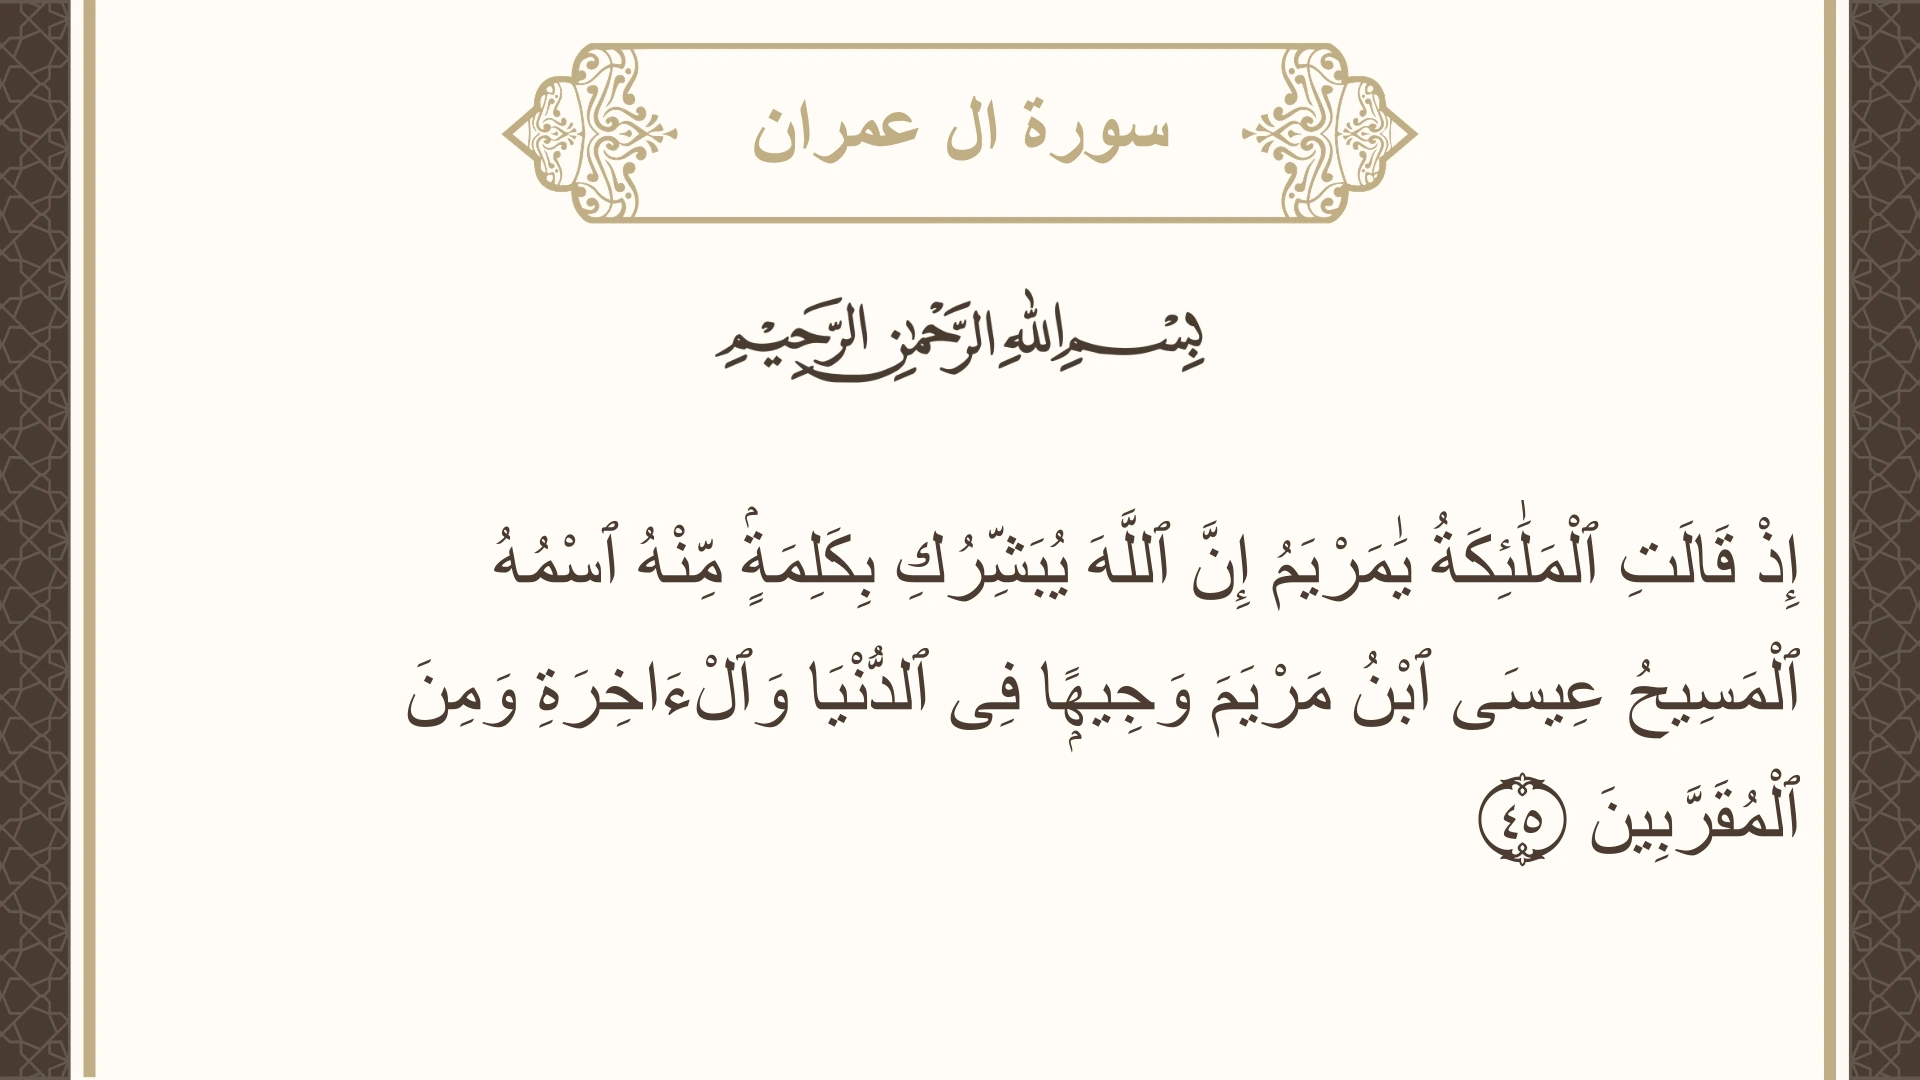 سورة ال عمران
بِسْمِ اللهِ الرَّحْمٰنِ الرَّحِيْمِ
إِذْ قَالَتِ ٱلْمَلَٰٓئِكَةُ يَٰمَرْيَمُ إِنَّ ٱللَّهَ يُبَشِّرُكِ بِكَلِمَةٍۢ مِّنْهُ ٱسْمُهُ
ٱلْمَسِيحُ عِيسَى ٱبْنُ مَرْيَمَ وَجِيهًۭا فِى ٱلدُّنْيَا وَٱلْءَاخِرَةِ وَمِنَ
ٱلْمُقَرَّبِينَ ٤٥